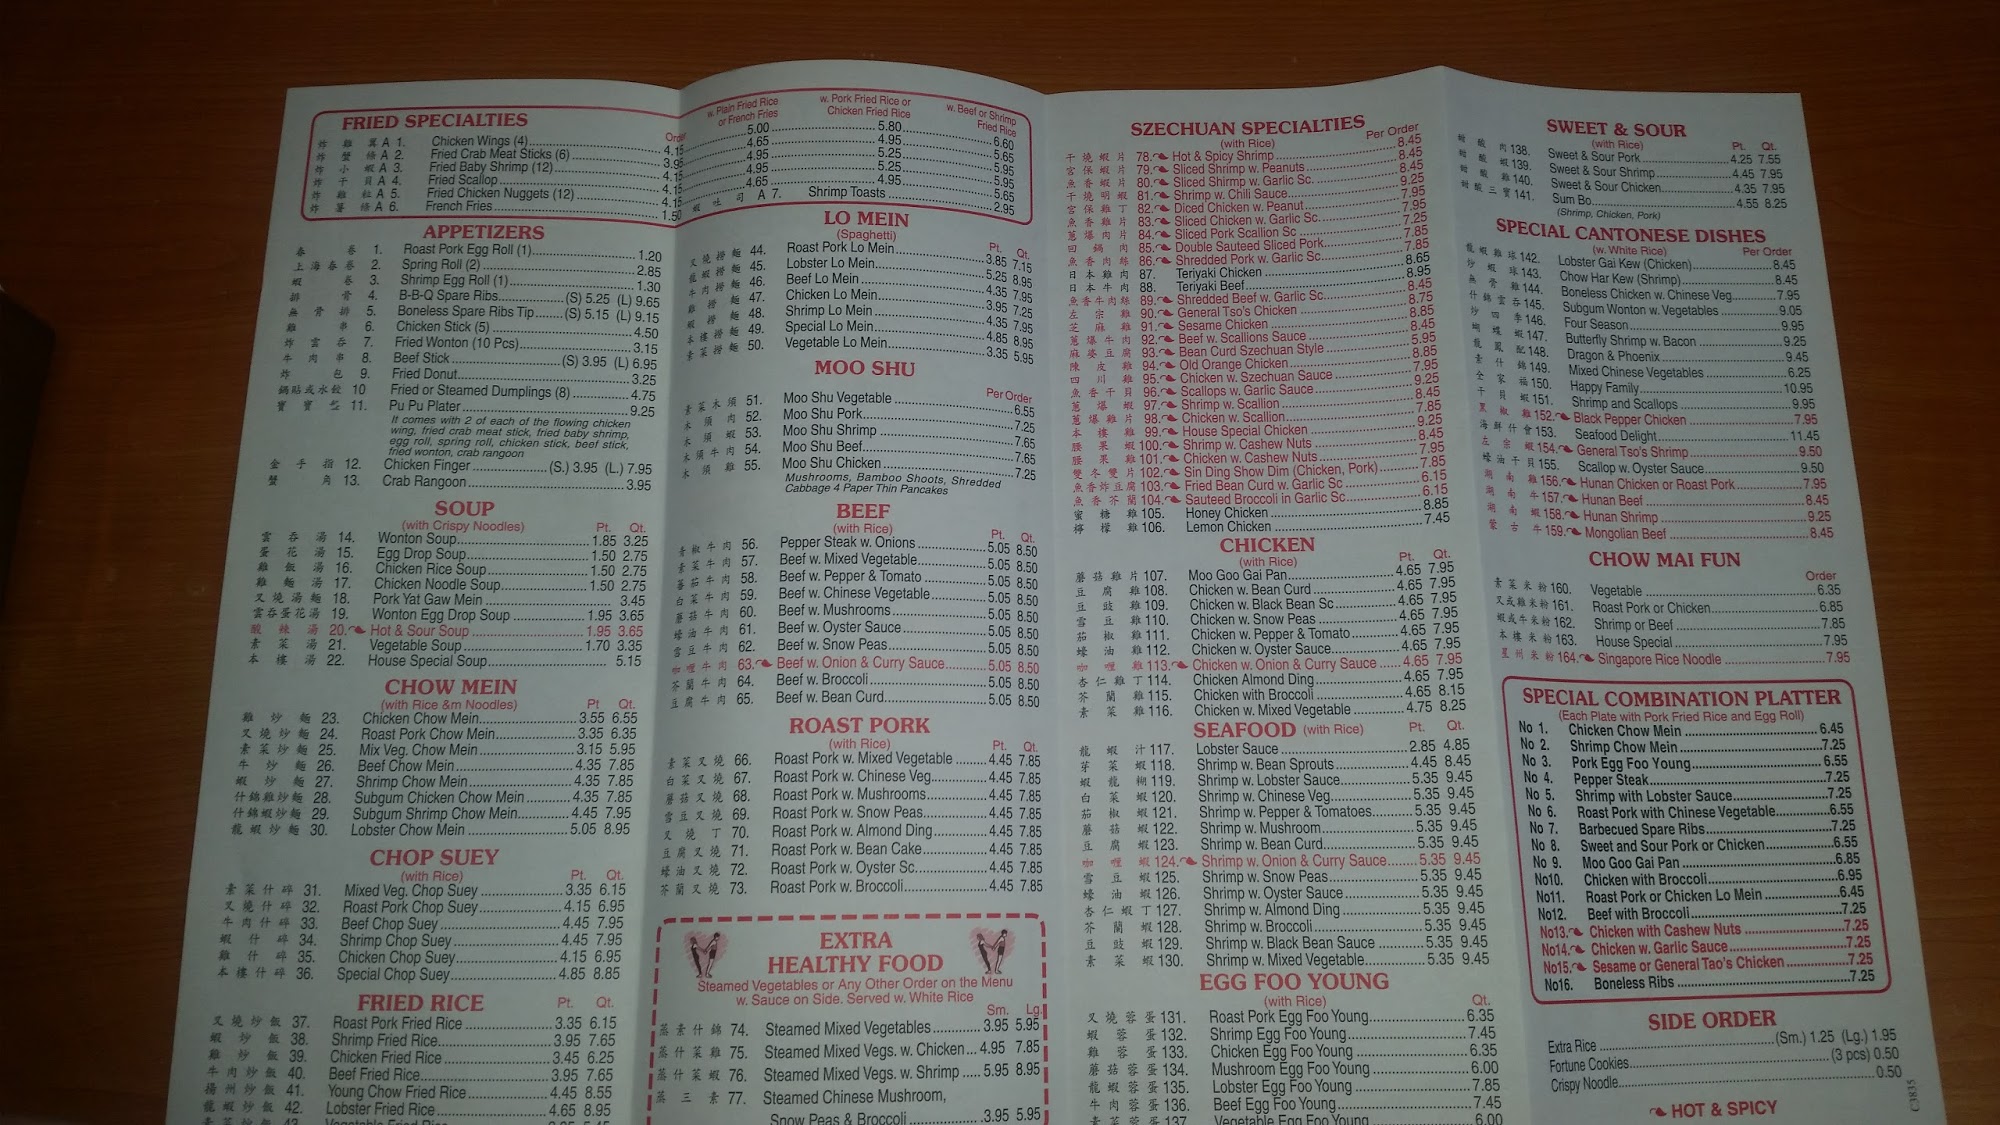 FRIED SPECIALTIES
Order
w. Plain Fried Rice or French Fries
w. Pork Fried Rice or Chicken Fried Rice
w. Beef or Shrimp Fried Rice
炸雞翼 A 1. Chicken Wings (4) 4.15 5.00 5.80 6.60
炸蟹條 A 2. Fried Crab Meat Sticks (6) 3.95 4.65 4.95 5.65
炸小蝦 A 3. Fried Baby Shrimp (12) 4.95 5.25 5.95
炸干貝 A 4. Fried Scallop 4.15 4.95 5.25 5.95
炸雞粒 A 5. Fried Chicken Nuggets (12) 4.15 4.65 4.95 5.65
炸薯條 A 6. French Fries 1.50
蝦吐司 A 7. Shrimp Toasts 2.95
APPETIZERS
春卷 1. Roast Pork Egg Roll (1) 1.20
上海春卷 2. Spring Roll (2) 2.85
蝦卷 3. Shrimp Egg Roll (1) 1.30
排骨 4. B-B-Q Spare Ribs (S) 5.25 (L) 9.65
無骨排 5. Boneless Spare Ribs Tip (S) 5.15 (L) 9.15
雞串 6. Chicken Stick (5) 4.50
炸雲吞 7. Fried Wonton (10 Pcs) 3.15
牛肉串 8. Beef Stick (S) 3.95 (L) 6.95
炸包 9. Fried Donut 3.25
鍋貼或水餃 10 Fried or Steamed Dumplings (8) 4.75
寶寶盤 11. Pu Pu Plater 9.25
It comes with 2 of each of the flowing chicken
wing, fried crab meat stick, fried baby shrimp,
egg roll, spring roll, chicken stick, beef stick,
fried wonton, crab rangoon
金手指 12. Chicken Finger (S.) 3.95 (L.) 7.95
蟹角 13. Crab Rangoon 3.95
SOUP
(with Crispy Noodles) Pt. Qt.
雲吞湯 14. Wonton Soup 1.85 3.25
蛋花湯 15. Egg Drop Soup 1.50 2.75
雞飯湯 16. Chicken Rice Soup 1.50 2.75
雞麵湯 17. Chicken Noodle Soup 1.50 2.75
叉燒湯麵 18. Pork Yat Gaw Mein 3.45
雲吞蛋花湯 19. Wonton Egg Drop Soup 1.95 3.65
酸辣湯 20. Hot & Sour Soup 1.95 3.65
素菜湯 21. Vegetable Soup 1.70 3.35
本樓湯 22. House Special Soup 5.15
CHOW MEIN
(with Rice &m Noodles) Pt Qt.
雞炒麵 23. Chicken Chow Mein 3.55 6.55
叉燒炒麵 24. Roast Pork Chow Mein 3.35 6.35
素菜炒麵 25. Mix Veg. Chow Mein 3.15 5.95
牛炒麵 26. Beef Chow Mein 4.35 7.85
蝦炒麵 27. Shrimp Chow Mein 4.35 7.85
什錦雞炒麵 28. Subgum Chicken Chow Mein 4.35 7.85
什錦蝦炒麵 29. Subgum Shrimp Chow Mein 4.45 7.95
龍蝦炒麵 30. Lobster Chow Mein 5.05 8.95
CHOP SUEY
(with Rice) Pt. Qt.
素菜什碎 31. Mixed Veg. Chop Suey 3.35 6.15
叉燒什碎 32. Roast Pork Chop Suey 4.15 6.95
牛肉什碎 33. Beef Chop Suey 4.45 7.95
蝦什碎 34. Shrimp Chop Suey 4.45 7.95
雞什碎 35. Chicken Chop Suey 4.15 6.95
本樓什碎 36. Special Chop Suey 4.85 8.85
FRIED RICE Pt. Qt.
叉燒炒飯 37. Roast Pork Fried Rice 3.35 6.15
蝦炒飯 38. Shrimp Fried Rice 3.95 7.65
雞炒飯 39. Chicken Fried Rice 3.45 6.25
牛肉炒飯 40. Beef Fried Rice 3.95 7.65
揚州炒飯 41. Young Chow Fried Rice 4.45 8.55
龍蝦炒飯 42. Lobster Fried Rice 4.65 8.95
素菜炒飯 43. Vegetable Fried Rice
LO MEIN
(Spaghetti) Pt. Qt.
叉燒撈麵 44. Roast Pork Lo Mein 3.85 7.15
龍蝦撈麵 45. Lobster Lo Mein 5.25 8.95
牛肉撈麵 46. Beef Lo Mein 4.35 7.95
雞撈麵 47. Chicken Lo Mein 3.95 7.25
蝦撈麵 48. Shrimp Lo Mein 4.35 7.95
本樓撈麵 49. Special Lo Mein 4.85 8.95
素菜撈麵 50. Vegetable Lo Mein 3.35 5.95
MOO SHU
Per Order
素菜木須 51. Moo Shu Vegetable 6.55
木須肉 52. Moo Shu Pork 7.25
木須蝦 53. Moo Shu Shrimp 7.65
木須牛肉 54. Moo Shu Beef 7.65
木須雞 55. Moo Shu Chicken 7.25
Mushrooms, Bamboo Shoots, Shredded
Cabbage 4 Paper Thin Pancakes
BEEF
(with Rice) Pt. Qt.
青椒牛肉 56. Pepper Steak w. Onions 5.05 8.50
素菜牛肉 57. Beef w. Mixed Vegetable 5.05 8.50
蕃茄牛肉 58. Beef w. Pepper & Tomato 5.05 8.50
白菜牛肉 59. Beef w. Chinese Vegetable 5.05 8.50
蘑菇牛肉 60. Beef w. Mushrooms 5.05 8.50
蠔油牛肉 61. Beef w. Oyster Sauce 5.05 8.50
雪豆牛肉 62. Beef w. Snow Peas 5.05 8.50
咖喱牛肉 63. Beef w. Onion & Curry Sauce 5.05 8.50
芥蘭牛肉 64. Beef w. Broccoli 5.05 8.50
豆腐牛肉 65. Beef w. Bean Curd 5.05 8.50
ROAST PORK
(with Rice) Pt. Qt.
素菜叉燒 66. Roast Pork w. Mixed Vegetable 4.45 7.85
白菜叉燒 67. Roast Pork w. Chinese Veg. 4.45 7.85
蘑菇叉燒 68. Roast Pork w. Mushrooms 4.45 7.85
雪豆叉燒 69. Roast Pork w. Snow Peas 4.45 7.85
叉燒丁 70. Roast Pork w. Almond Ding 4.45 7.85
豆腐叉燒 71. Roast Pork w. Bean Cake 4.45 7.85
蠔油叉燒 72. Roast Pork w. Oyster Sc. 4.45 7.85
芥蘭叉燒 73. Roast Pork w. Broccoli 4.45 7.85
EXTRA
HEALTHY FOOD
Steamed Vegetables or Any Other Order on the Menu
w. Sauce on Side. Served w. White Rice
Sm. Lg.
蒸素什錦 74. Steamed Mixed Vegetables 3.95 5.95
蒸什菜雞 75. Steamed Mixed Vegs. w. Chicken 4.95 7.85
蒸什菜蝦 76. Steamed Mixed Vegs. w. Shrimp 5.95 8.95
蒸三素 77. Steamed Chinese Mushroom,
Snow Peas & Broccoli 3.95 5.95
SZECHUAN SPECIALTIES
(with Rice) Per Order
干燒蝦片 78. Hot & Spicy Shrimp 8.45
宮保蝦片 79. Sliced Shrimp w. Peanuts 8.45
魚香蝦片 80. Sliced Shirmp w. Garlic Sc. 8.45
干燒明蝦 81. Shrimp w. Chili Sauce 9.25
宮保雞丁 82. Diced Chicken w. Peanut 7.95
魚香雞片 83. Sliced Chicken w. Garlic Sc. 7.95
蔥爆肉片 84. Sliced Pork Scallion Sc 7.25
回鍋肉 85. Double Sauteed Sliced Pork 7.85
魚香肉絲 86. Shredded Pork w. Garlic Sc. 7.85
日本雞肉 87. Teriyaki Chicken 8.65
日本牛肉 88. Teriyaki Beef 8.95
魚香牛肉絲 89. Shredded Beef w. Garlic Sc. 8.45
左宗雞 90. General Tso's Chicken 8.75
芝麻雞 91. Sesame Chicken 8.85
蔥爆牛肉 92. Beef w. Scallions Sauce 8.45
麻婆豆腐 93. Bean Curd Szechuan Style 5.95
陳皮雞 94. Old Orange Chicken 8.85
四川雞 95. Chicken w. Szechuan Sauce 7.95
魚香干貝 96. Scallops w. Garlic Sauce 9.25
蔥爆蝦 97. Shrimp w. Scallion 8.45
蔥爆雞片 98. Chicken w. Scallion 7.85
本樓雞 99. House Special Chicken 9.25
腰果蝦 100. Shrimp w. Cashew Nuts 8.45
腰果雞 101. Chicken w. Cashew Nuts 7.95
雙冬雙片 102. Sin Ding Show Dim (Chicken, Pork) 7.85
魚香炸豆腐 103. Fried Bean Curd w. Garlic Sc 6.15
魚香芥蘭 104. Sauteed Broccoli in Garlic Sc 6.15
蜜糖雞 105. Honey Chicken 8.85
檸檬雞 106. Lemon Chicken 7.45
CHICKEN
(with Rice) Pt. Qt.
蘑菇雞片 107. Moo Goo Gai Pan 4.65 7.95
豆腐雞 108. Chicken w. Bean Curd 4.65 7.95
豆豉雞 109. Chicken w. Black Bean Sc 4.65 7.95
雪豆雞 110. Chicken w. Snow Peas 4.65 7.95
茄椒雞 111. Chicken w. Pepper & Tomato 4.65 7.95
蠔油雞 112. Chicken w. Oyster Sauce 4.65 7.95
咖喱雞 113. Chicken w. Onion & Curry Sauce 4.65 7.95
杏仁雞丁 114. Chicken Almond Ding 4.65 7.95
芥蘭雞 115. Chicken with Broccoli 4.65 8.15
素菜雞 116. Chicken w. Mixed Vegetable 4.75 8.25
SEAFOOD (with Rice) Pt. Qt.
龍蝦汁 117. Lobster Sauce 2.85 4.85
芽菜蝦 118. Shrimp w. Bean Sprouts 4.45 8.45
蝦龍糊 119. Shrimp w. Lobster Sauce 5.35 9.45
白菜蝦 120. Shrimp w. Chinese Veg 5.35 9.45
茄椒蝦 121. Shrimp w. Pepper & Tomatoes 5.35 9.45
蘑菇蝦 122. Shrimp w. Mushroom 5.35 9.45
豆腐蝦 123. Shrimp w. Bean Curd 5.35 9.45
咖喱蝦 124. Shrimp w. Onion & Curry Sauce 5.35 9.45
雪豆蝦 125. Shrimp w. Snow Peas 5.35 9.45
蠔油蝦 126. Shrimp w. Oyster Sauce 5.35 9.45
杏仁蝦丁 127. Shrimp w. Almond Ding 5.35 9.45
芥蘭蝦 128. Shrimp w. Broccoli 5.35 9.45
豆豉蝦 129. Shrimp w. Black Bean Sauce 5.35 9.45
素菜蝦 130. Shrimp w. Mixed Vegetable 5.35 9.45
EGG FOO YOUNG
(with Rice) Qt.
叉燒蓉蛋 131. Roast Pork Egg Foo Young 6.35
蝦蓉蛋 132. Shrimp Egg Foo Young 7.45
雞蓉蛋 133. Chicken Egg Foo Young 6.35
蘑菇蓉蛋 134. Mushroom Egg Foo Young 6.00
龍蝦蓉蛋 135. Lobster Egg Foo Young 7.85
牛肉蓉蛋 136. Beef Egg Foo Young 7.45
素菜蓉蛋 137. Vegetable Egg Foo Young 6.00
SWEET & SOUR
(with Rice) Pt. Qt.
甜酸肉 138. Sweet & Sour Pork 4.25 7.55
甜酸蝦 139. Sweet & Sour Shrimp 4.45 7.95
甜酸雞 140. Sweet & Sour Chicken 4.35 7.95
甜酸三寶 141. Sum Bo 4.55 8.25
(Shrimp, Chicken, Pork)
SPECIAL CANTONESE DISHES
(w. White Rice) Per Order
龍蝦雞球 142. Lobster Gai Kew (Chicken) 8.45
炒蝦球 143. Chow Har Kew (Shrimp) 8.45
無骨雞 144. Boneless Chicken w. Chinese Veg 7.95
什錦雲吞 145. Subgum Wonton w. Vegetables 9.05
炒四季 146. Four Season 9.95
蝴蝶蝦 147. Butterfly Shrimp w. Bacon 9.25
龍鳳配 148. Dragon & Phoenix 9.45
素什錦 149. Mixed Chinese Vegetables 6.25
全家福 150. Happy Family 10.95
干貝蝦 151. Shrimp and Scallops 9.95
黑椒雞 152. Black Pepper Chicken 7.95
海鮮什會 153. Seafood Delight 11.45
左宗蝦 154. General Tso's Shrimp 9.50
蠔油干貝 155. Scallop w. Oyster Sauce 9.50
湖南雞 156. Hunan Chicken or Roast Pork 7.95
湖南牛 157. Hunan Beef 8.45
湖南蝦 158. Hunan Shrimp 9.25
蒙古牛 159. Mongolian Beef 8.45
CHOW MAI FUN
Order
素菜米粉 160. Vegetable 6.35
叉或雞米粉 161. Roast Pork or Chicken 6.85
蝦或牛米粉 162. Shrimp or Beef 7.85
本樓米粉 163. House Special 7.95
星州米粉 164. Singapore Rice Noodle 7.95
SPECIAL COMBINATION PLATTER
(Each Plate with Pork Fried Rice and Egg Roll)
No 1. Chicken Chow Mein 6.45
No 2. Shrimp Chow Mein 7.25
No 3. Pork Egg Foo Young 6.55
No 4. Pepper Steak 7.25
No 5. Shrimp with Lobster Sauce 7.25
No 6. Roast Pork with Chinese Vegetable 6.55
No 7. Barbecued Spare Ribs 7.25
No 8. Sweet and Sour Pork or Chicken 6.55
No 9. Moo Goo Gai Pan 6.85
No10. Chicken with Broccoli 6.95
No11. Roast Pork or Chicken Lo Mein 6.45
No12. Beef with Broccoli 7.25
No13. Chicken with Cashew Nuts 7.25
No14. Chicken w. Garlic Sauce 7.25
No15. Sesame or General Tao's Chicken 7.25
No16. Boneless Ribs 7.25
SIDE ORDER
Extra Rice (Sm.) 1.25 (Lg.) 1.95
Fortune Cookies (3 pcs) 0.50
Crispy Noodle 0.50
HOT & SPICY
C3835